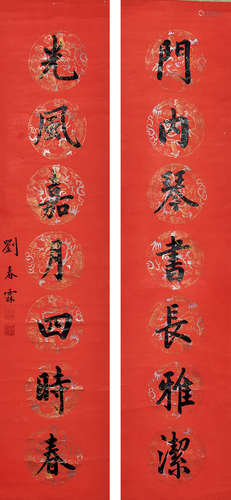 門內琴書長雅潔
光風嘉月四時春
劉春霖